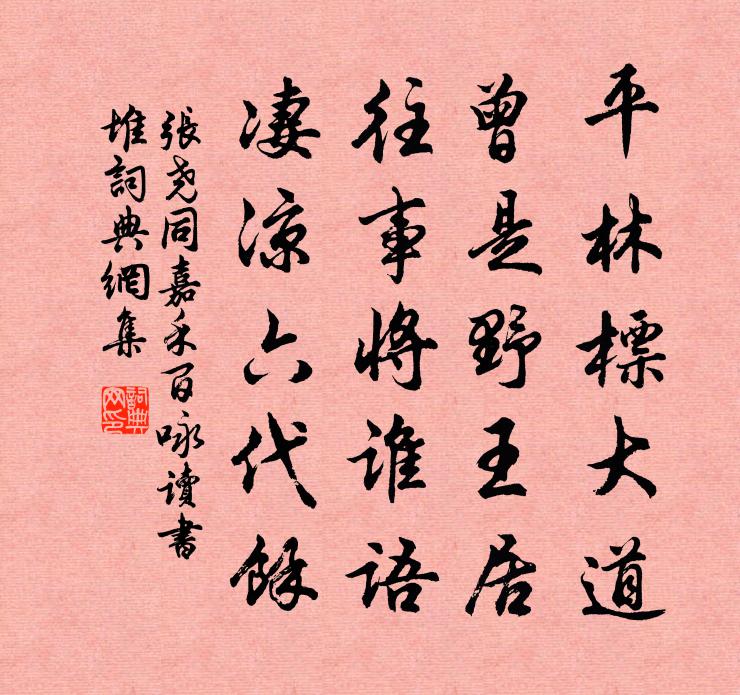 平林標大道
曾是野王居
往事將誰語
凄涼六代餘
張堯同嘉禾百咏讀書
堆詞典網集
詞典網印